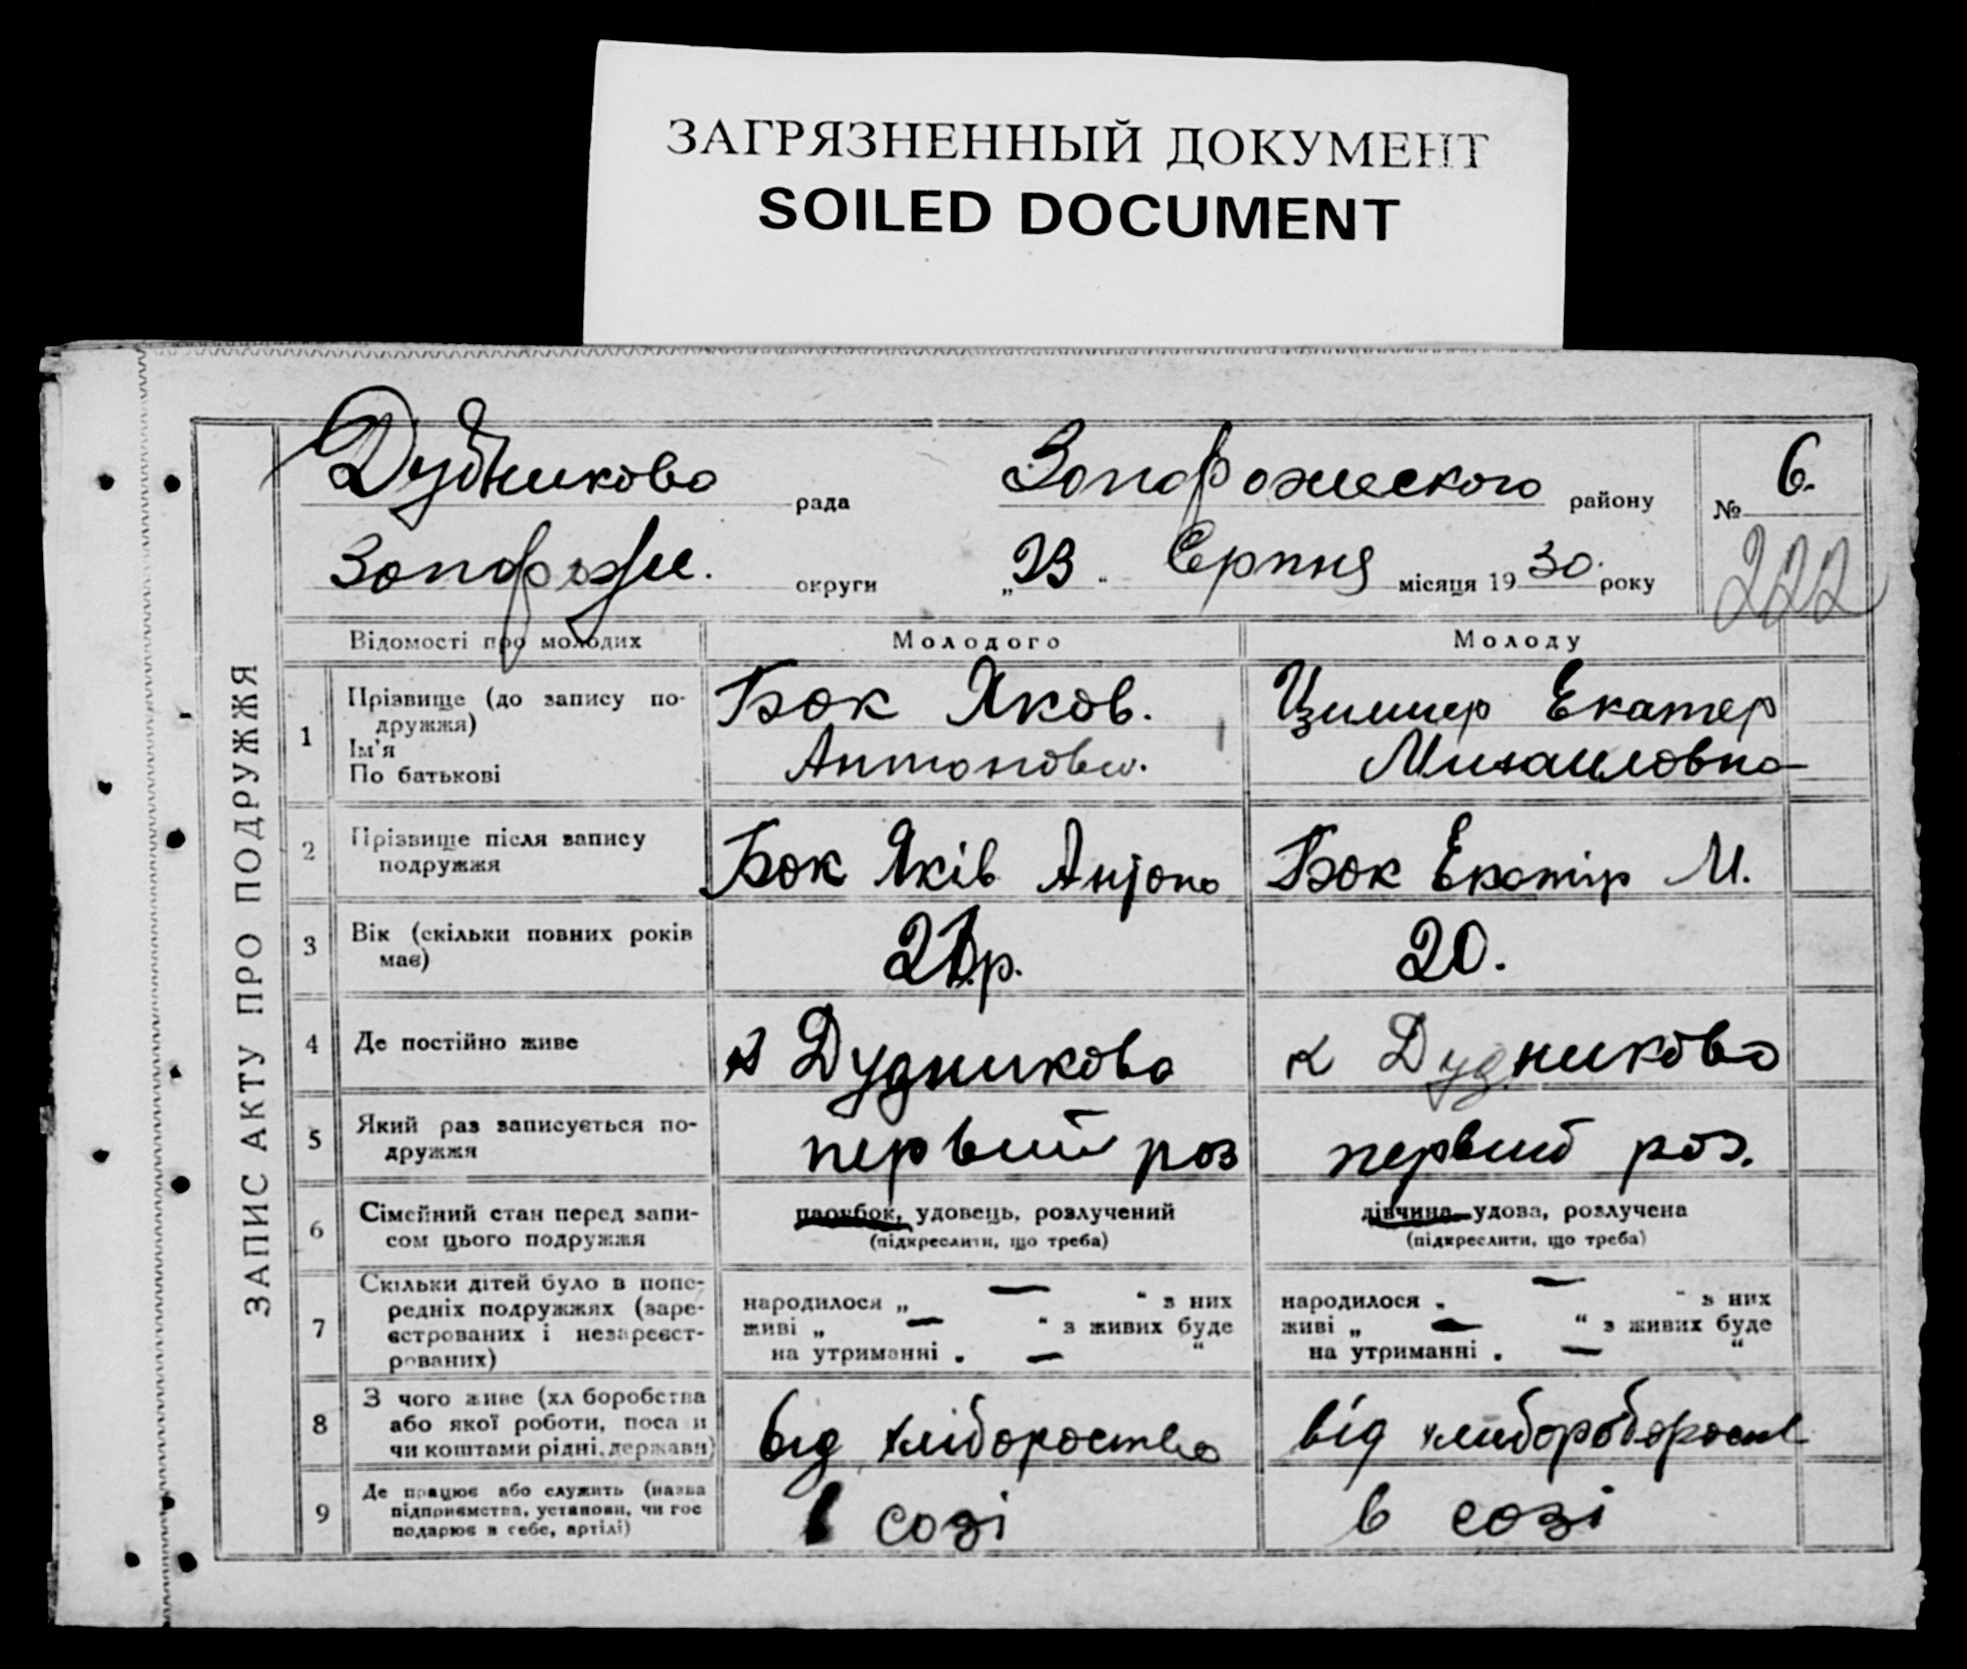 ЗАГРЯЗНЕННЫЙ ДОКУМЕНТ
SOILED DOCUMENT
ЗАПИС АКТУ ПРО ПОДРУЖЖЯ
Дудниково рада Запорожеского району № 6.
Запорож. округи „23" Серпня місяця 1930. року
222
Відомості про молодих Молодого Молоду
1 Прізвище (до запису по-
дружжя)
Ім'я
По батькові
Бок Яков.
Антонови.
Цимер Екатер
Михаиловна
2 Прізвище після запису
подружжя
Бок Яків Антоно
Бок Екатир М.
3 Вік (скільки повних років
має)
р.
20.
4 Де постійно живе
Дудниково
Дудниково
5 Який раз записується по-
дружжя
первий роз
первий роз.
6 Сімейний стан перед запи-
сом цього подружжя
парубок, удовець, розлучений
(підкреслити, що треба)
дівчина, удова, розлучена
(підкреслити, що треба)
7 Скільки дітей було в попе-
редніх подружжях (заре-
єстрованих і незареєст-
рованих)
народилося „ — " з них
живі „ — " з живих буде
на утриманні „ — "
народилося „ — " з них
живі „ — " з живих буде
на утриманні „ — "
8 З чого живе (хліборобства
або якої роботи, посади
чи коштами рідні, держави)
від хлібороство
від
9 Де працює або служить (назва
підприємства, установи, чи гос
подарює в себе, артілі)
в созі
в созі